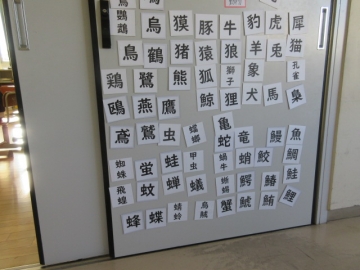 鸚鵡 烏 獏 豚 牛 豹 虎 犀
鳥 鶴 猪 猿 狼 羊 兎 猫
鶏 鷺 熊 狐 獅子 象 孔雀
鴎 燕 鷹 鯨 狸 犬 馬 梟
鳶 鷲 虫 蟷螂 亀 蛇 竜 鰻 魚
蜘蛛 蛍 蛙 甲虫 蝸牛 蛸 鮫 鯛
飛蝗 蚊 蝉 蟻 蜥蜴 鰐 鰆 鮭
蜂 蝶 蜻蛉 烏賊 蟹 鯱 鮪 鯉